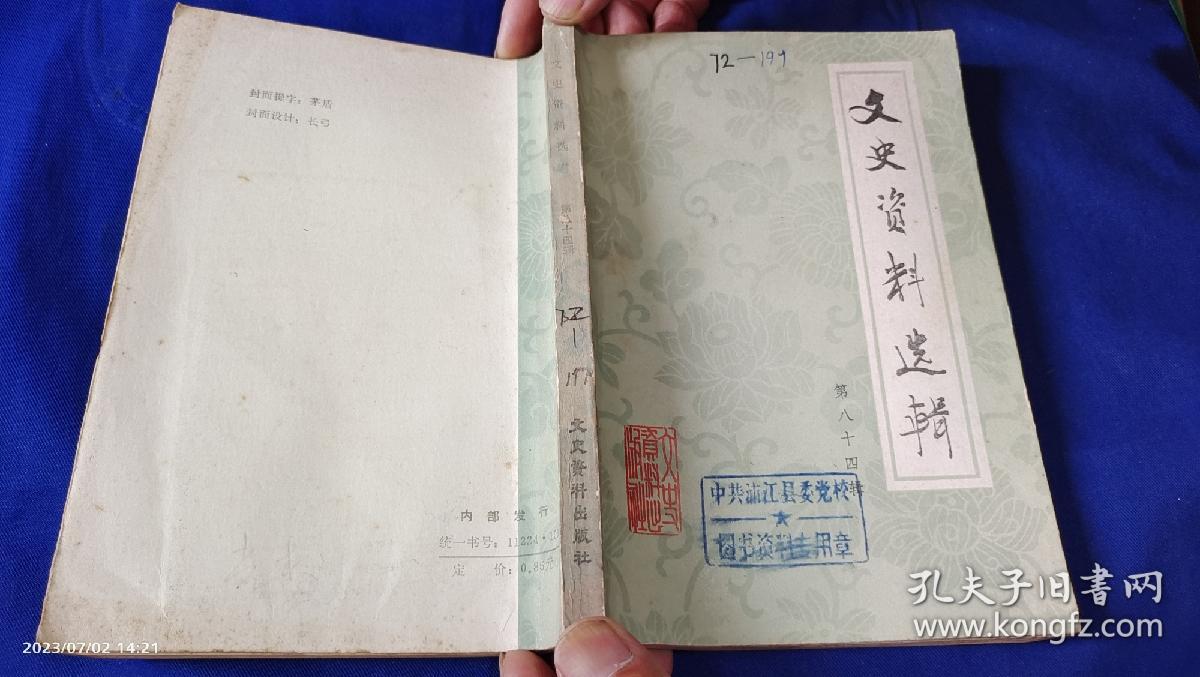 封面题字：茅盾
封面设计：长弓
内部发行
统一书号：11224·
定 价：0.85元
文史资料选辑
第八十四辑
72
197
文史资料出版社
72—197
文史资料选辑
第八十四辑
文史资料出版社
中共浦江县委党校
图书资料专用章
孔夫子旧书网
www.kongfz.com
2023/07/02 14:21